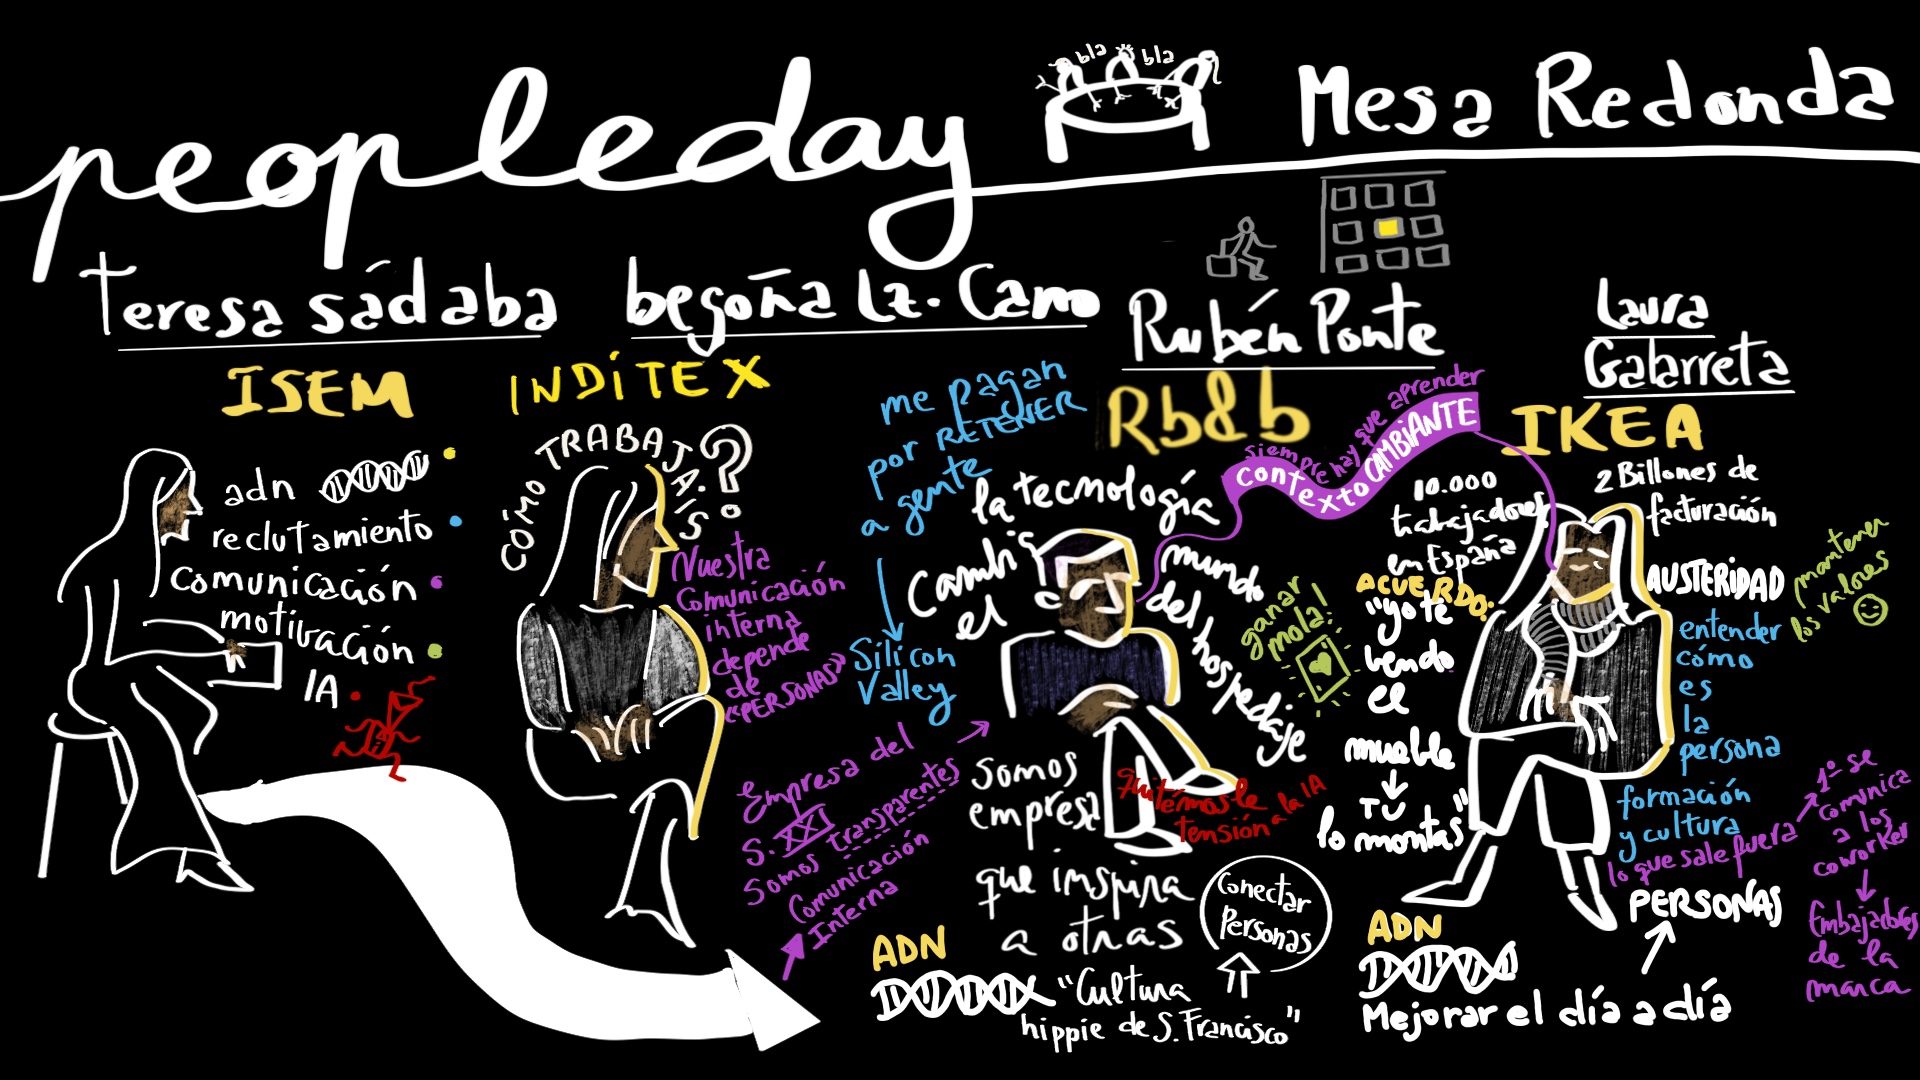 peopleday
bla bla
Mesa Redonda
Teresa Sádaba
ISEM
adn
reclutamiento
comunicación
motivación
IA
begoña Lz. Cano
INDITEX
CÓMO TRABAJÁIS?
Nuestra
Comunicación
interna
depende
de
"PERSONAS"
Rubén Ponte
Rb&b
me pagan
por RETENER
a gente
Silicon
Valley
la tecnología
Cambia
el
mundo
del hospedaje
siempre hay que aprender
contexto CAMBIANTE
ganar
mola!
Empresa del
S. XXI
Somos transparentes
Comunicación
Interna
somos
empresa
que inspira
a otras
Quitémosle
tensión a la IA
Conectar
Personas
ADN
"Cultura
hippie de S. Francisco"
Laura
Gabarreta
IKEA
10.000
trabajadores
en España
2 Billones de
facturación
ACUERDO:
"yo te
vendo
el
mueble
TÚ
lo montas"
AUSTERIDAD
mantener
los valores
entender
cómo
es
la
persona
formación
y cultura
lo que sale fuera
1º se
comunica
a los
coworker
Embajadores
de la
marca
PERSONAS
ADN
Mejorar el día a día